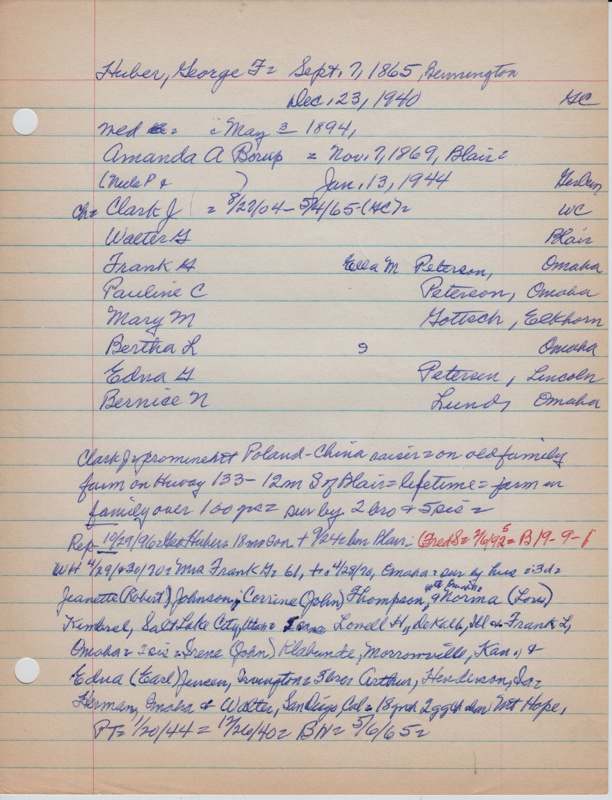 Huber, George F = Sept. 7, 1865, Bennington
Dec. 23, 1940 GC
med = May 1894,
Amanda A Borup = Nov. 7, 1869, Blair =
(Nels P & ) Jan. 13, 1944
Ch = Clark J = 8/27/04 - 5/4/65 (GC) = WC
Walter G Blair
Frank G Ella M Peterson, Omaha
Pauline C Peterson, Omaha
Mary M Gottsch, Elkhorn
Bertha L Omaha
Edna G Petersen, Lincoln
Bernice N Lund, Omaha
Clark J = prominent Poland-China raiser = on old family
farm on Huway 133 - 12 m S of Blair = lifetime = farm in
family over 100 yrs = sur by 2 bro & 5 sis =
Rep 10/29/96 = Geo Huber = 18 mo son + 9/24 = bur Blair - (Fred S = 2/6/95 = B 19-9-1
WH 4/29 & 30/70 = Mrs Frank G = 61, + = 4/28/70, Omaha = sur by hus = 3 d =
Jeanette (Robert) Johnson, Corrine (John) Thompson, & Norma (Love)
Kimbrel, Salt Lake City, Lonell H, DeKalb, Ill & Frank L,
Omaha = 2 sis = Irene (John) Klabunde, Morrowville, Kan., &
Edna (Earl) Jensen, Irvington = 3 bro Arthur, Henderson, Ia =
Herman, Omaha & Walter, San Diego, Cal = 18 grch 2 ggch = bur Mt Hope,
PT = 1/20/44 = 12/26/40 = BN = 5/6/65 =